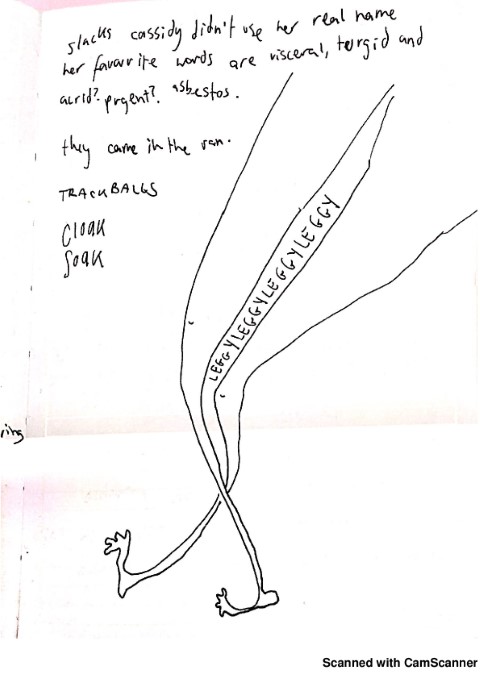 slacks cassidy didn't use her real name
her favourite words are visceral, turgid and
acrid? prgent?. asbestos.
they came in the van.
TRACKBALLS
CLOAK
SOAK
LEGGYLEGGYLEGGYLEGGY
ring
Scanned with CamScanner